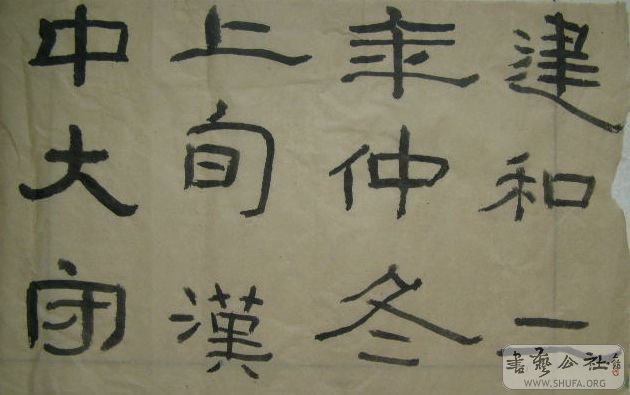 建和二
年仲冬
上旬漢
中大守
書藝公社
WWW.SHUFA.ORG